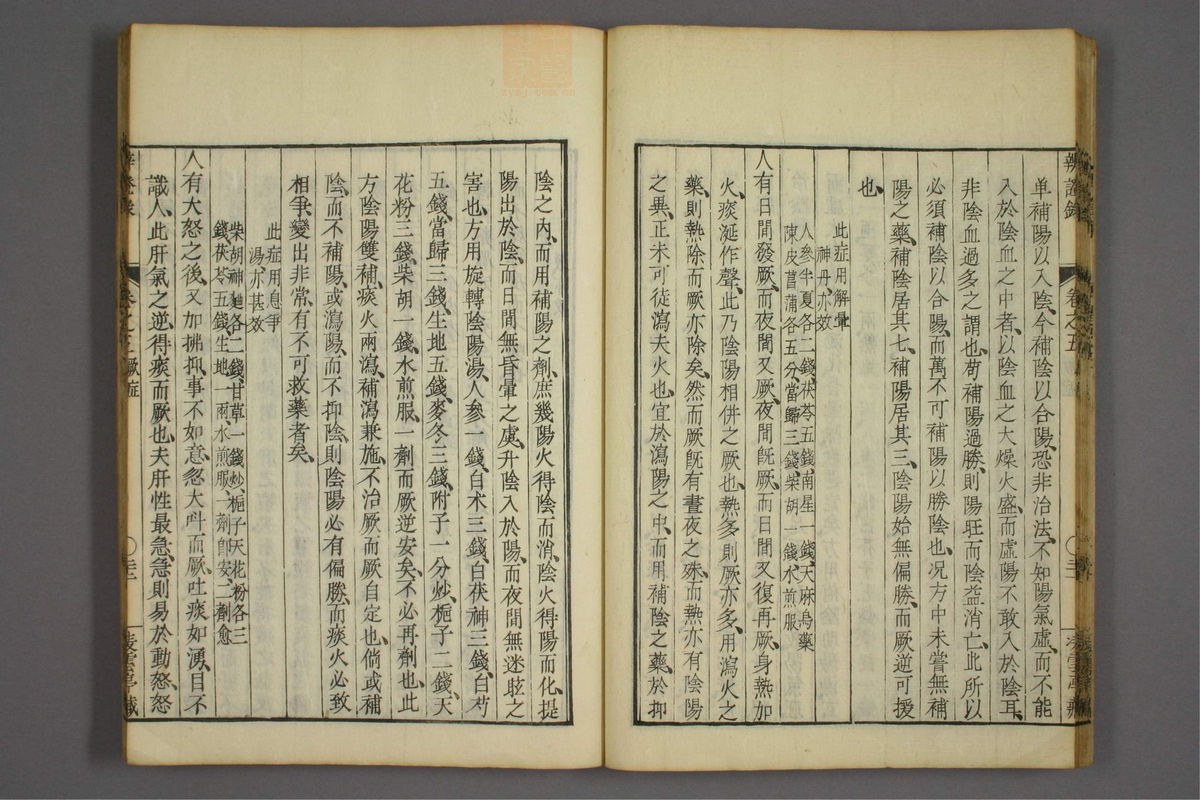 辨證錄 卷之五
單補陽以入陰、今補陰以合陽、恐非治法、不知陽氣虛、而不能
入於陰血之中者、以陰血之大燥火盛、而虛陽不敢入於陰耳、
非陰血過多之謂也、苟補陽過勝、則陽旺而陰益消亡、此所以
必須補陰以合陽、而萬不可補陽以勝陰也、況方中未嘗無補
陽之藥、補陰居其七、補陽居其三、陰陽始無偏勝、而厥逆可援
也、
此症用解暈
神丹亦效
人參半夏各二錢、茯苓五錢、南星一錢、天麻烏藥
陳皮菖蒲各五分、當歸三錢、柴胡一錢、水煎服
人有日間發厥、而夜間又厥、夜間旣厥、而日間又復再厥、身熱加
火、痰涎作聲、此乃陰陽相併之厥也、熱多則厥亦多、用瀉火之
藥、則熱除而厥亦除矣、然而厥旣有晝夜之殊、而熱亦有陰陽
之異、正未可徒瀉夫火也、宜於瀉陽之中、而用補陰之藥、於抑
陰之內、而用補陽之劑、庶幾陽火得陰而消、陰火得陽而化、提
陽出於陰、而日間無昏暈之虞、升陰入於陽、而夜間無迷眩之
害也、方用旋轉陰陽湯、人參一錢、白术三錢、白茯神三錢、白芍
五錢、當歸三錢、生地五錢、麥冬三錢、附子一分、炒梔子二錢、天
花粉三錢、柴胡一錢、水煎服、一劑而厥逆安矣、不必再劑也、此
方陰陽雙補、痰火兩瀉、補瀉兼施、不治厥而厥自定也、倘或補
陰而不補陽、或瀉陽而不抑陰、則陰陽必有偏勝、而痰火必致
相爭、變出非常、有不可救藥者矣、
此症用息爭
湯亦甚效
柴胡神麯各二錢、甘草一錢、炒梔子天花粉各三
錢、茯苓五錢、生地一兩、水煎服、一劑卽安、二劑愈
人有大怒之後、又加拂抑、事不如意、忽大呌而厥、吐痰如湧、目不
識人、此肝氣之逆、得痰而厥也、夫肝性最急、急則易於動怒、怒
卷之五厥症